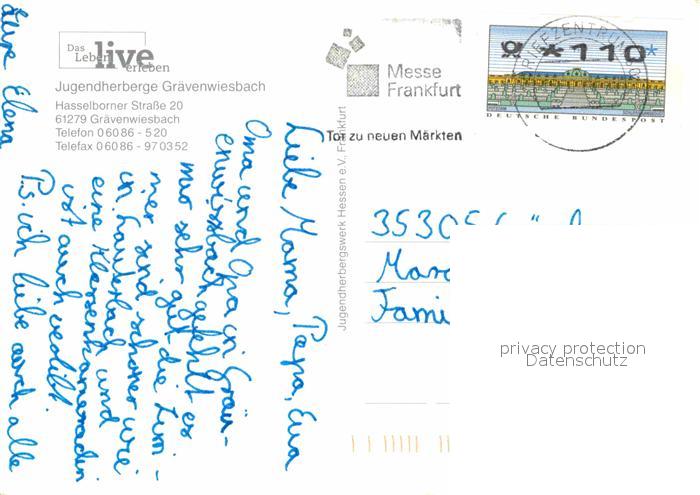 Das
Leben
live
erleben
Jugendherberge Grävenwiesbach
Hasselborner Straße 20
61279 Grävenwiesbach
Telefon 0 60 86 - 5 20
Telefax 0 60 86 - 97 03 52
Messe
Frankfurt
Tor zu neuen Märkten
*110*
DEUTSCHE BUNDESPOST
BRIEFZENTRUM
Jugendherbergswerk Hessen e.V., Frankfurt
Liebe Mama, Papa, Eva
Oma und Opa in Gräv-
enwiessbach gefehlt es
mir sehr gut die Zim-
mer sind schöner wie
in Lauterbach und
eine Klassenkameradin
ist auch verliebt
P.S. ich liebe euch alle
Eure Elena
3530
Fami
privacy protection
Datenschutz